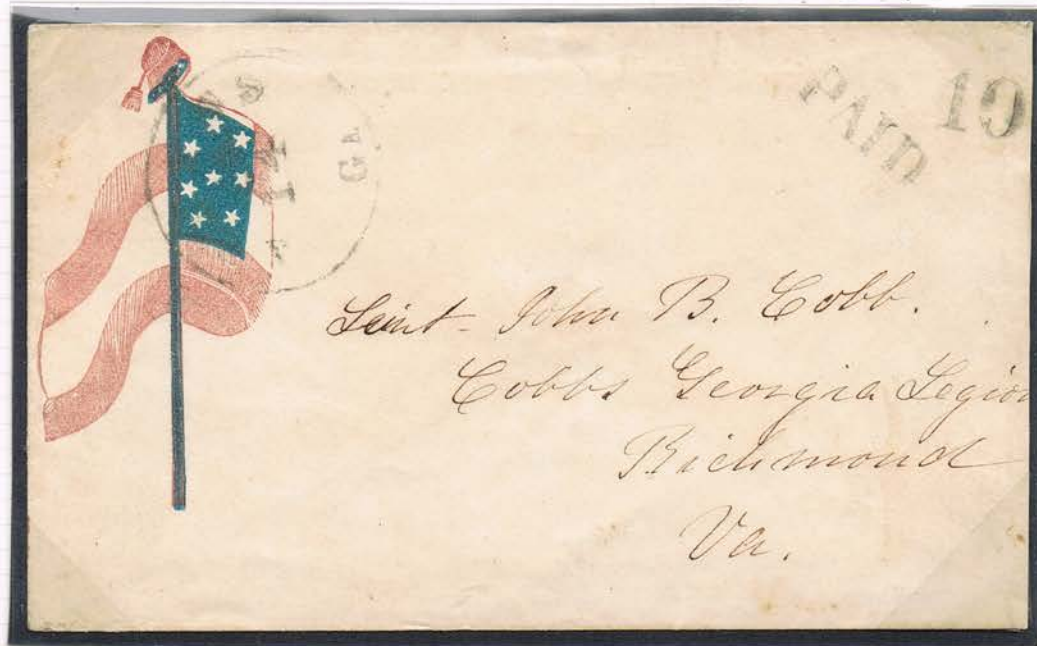 PAID 10
GA
14
Leint - John B. Cobb.
Cobbs Georgia Legion
Richmond
Va.